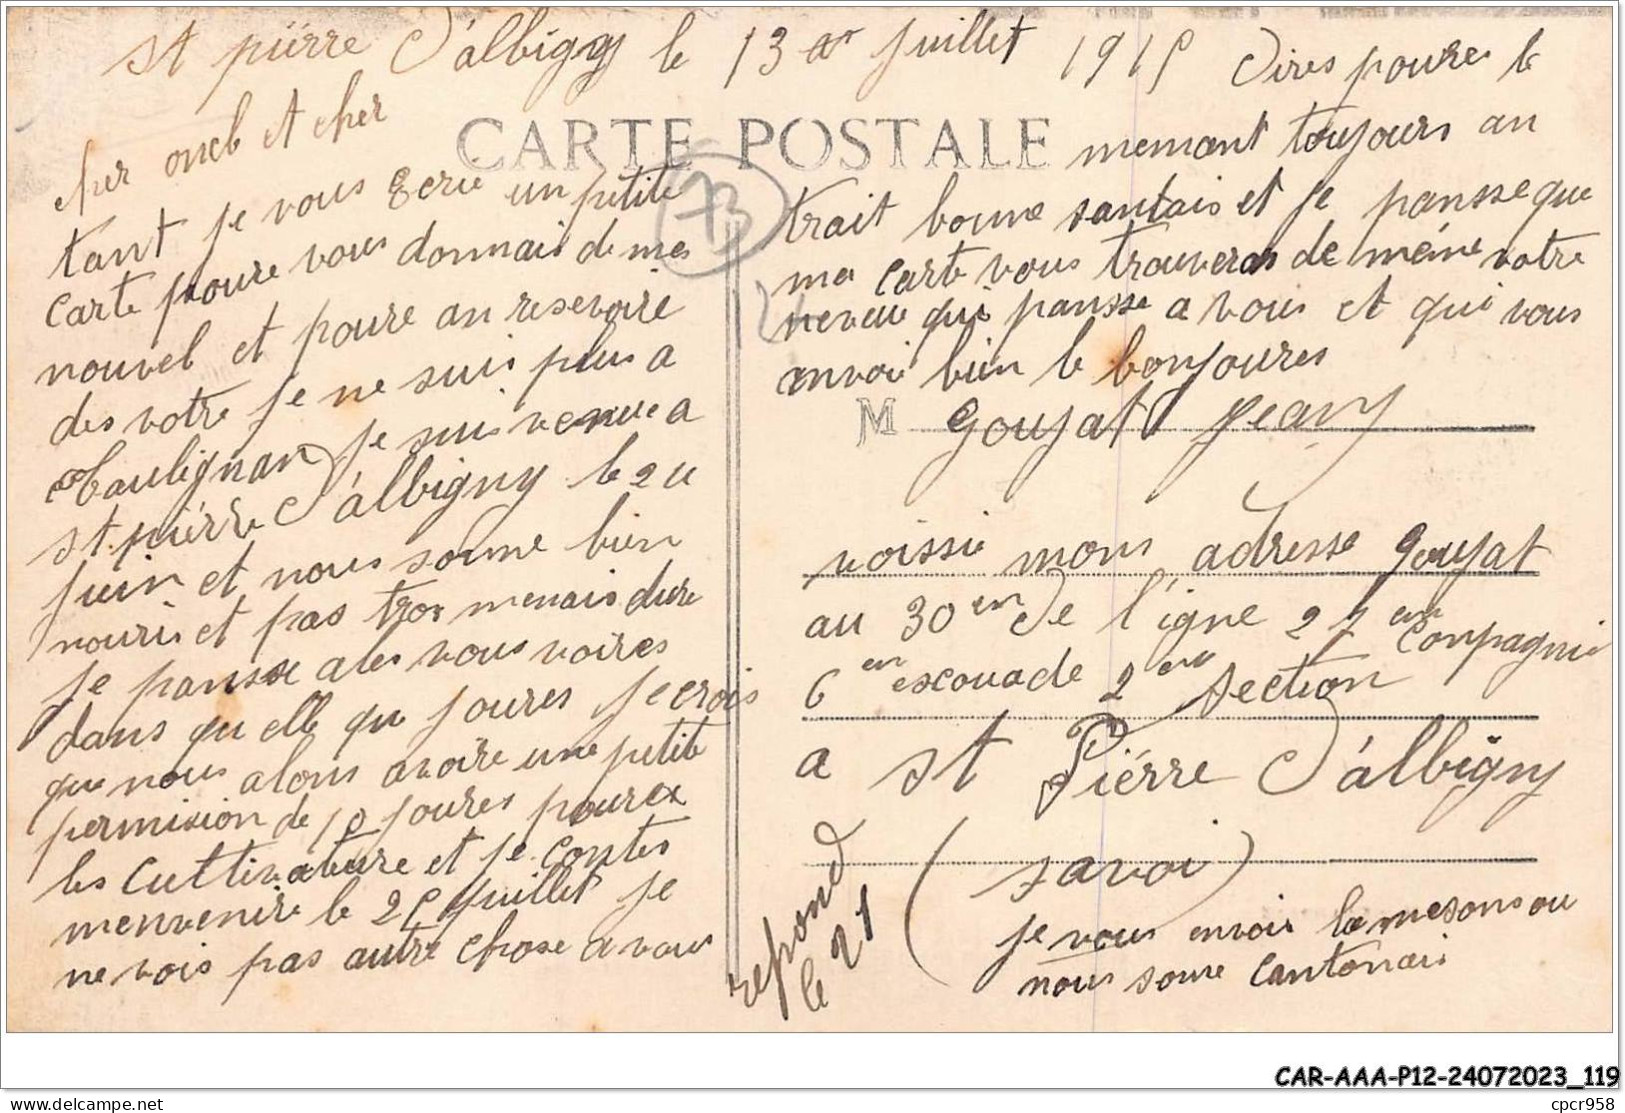 St pierre D'albigny le 13 Juillet 1915
cher oncle et cher
tant je vous Ecrie un petite
carte poure vous donnais de mes
nouvel et poure an resevoire
des votre je ne suis plus a
Taulignan je suis venue a
st pierre D'albigny le 20
juin et nous some bien
nouris et pas trop menais dure
je pansse ales vous voires
dans qu elle qu joures je crois
que nous alons avoire une petite
permision de 10 joures poure
les cultivature et je contes
menvenire le 25 juillet je
ne vois pas autre chose a vous
Dires poure le
memant toujours an
trait bonne santais et je pansse que
ma carte vous trouveras de mème votre
neveue qui pansse a vous et qui vous
anvoi bien le bonjoures
CARTE POSTALE
73
M Goujat Jeany
voissie mons adresse Goujat
au 30 em De l'igne 27 em Compagnie
6 em escouade 2 em section
a St Pièrre D'albigny
(Savoi)
je vous envoi la mesons ou
nous some cantonais
repond
le 21
CAR-AAA-P12-24072023_119
delcampe.net
cpcr958